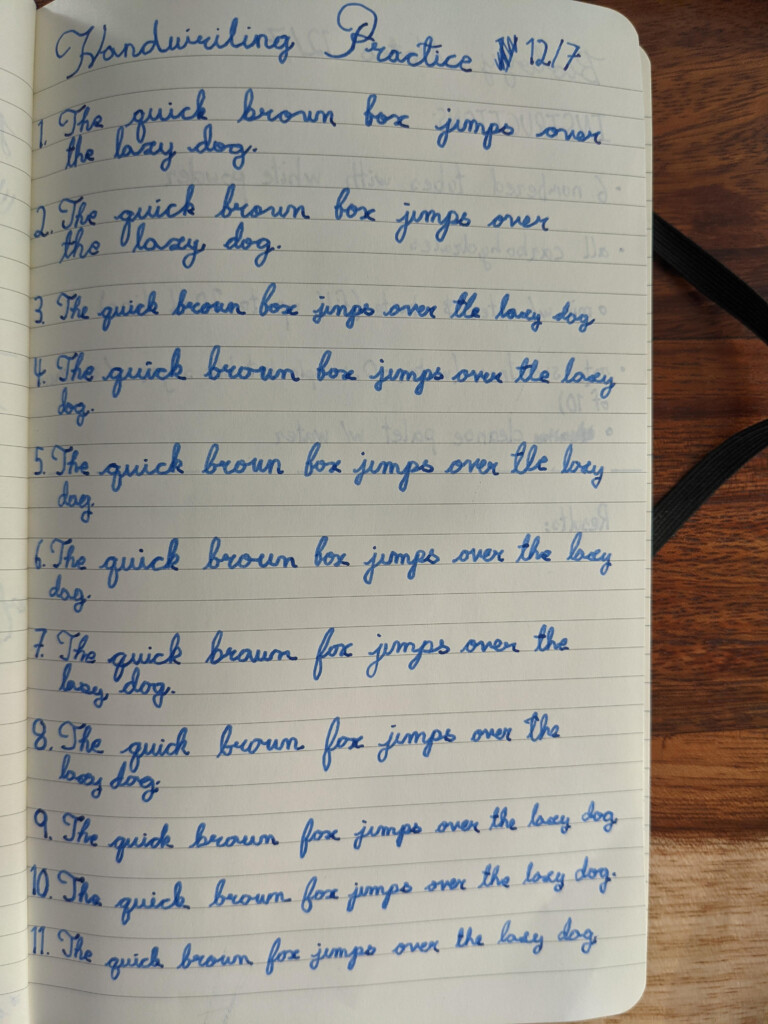 Handwriling Practice 12/7
1. The quick brown box jimps over
the lazy dog.
2. The quick brown box jimps over
the lazy dog.
3. The quick brown box jimps over the lazy dog
4. The quick brown box jimps over the lazy
dog.
5. The quick brown box jimps over the lazy
dog.
6. The quick brown box jimps over the lazy
dog.
7. The quick brown fox jimps over the
lazy dog.
8. The quick brown fox jimps over the
lazy dog.
9. The quick brown fox jimps over the lazy dog
10. The quick brown fox jimps over the lazy dog.
11. The quick brown fox jimps over the lazy dog